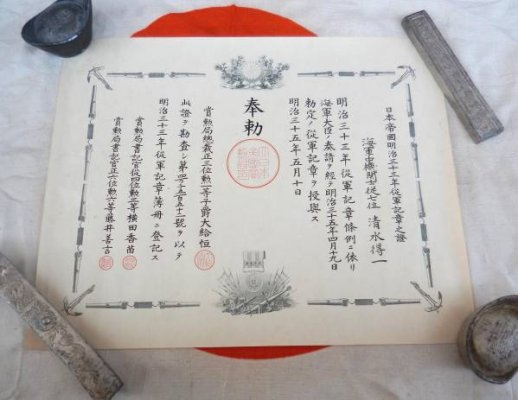 日本帝國明治三十三年從軍記章之證
海軍中機關士從七位 清水得一
明治三十三年從軍記章條例ニ依リ
海軍大臣ノ奏請ヲ經テ明治三十五年四月十九日
勅定ノ從軍記章ヲ授與ス
明治三十五年五月十日
奉勅
賞勲局總裁正三位勲一等子爵大給恒
此證ヲ勘査シ第四千三百五十二號ヲ以テ
明治三十三年從軍記章簿冊ニ登記ス
賞勲局書記官從四位勲三等横田香苗
賞勲局書記官正六位勲六等藤井善言